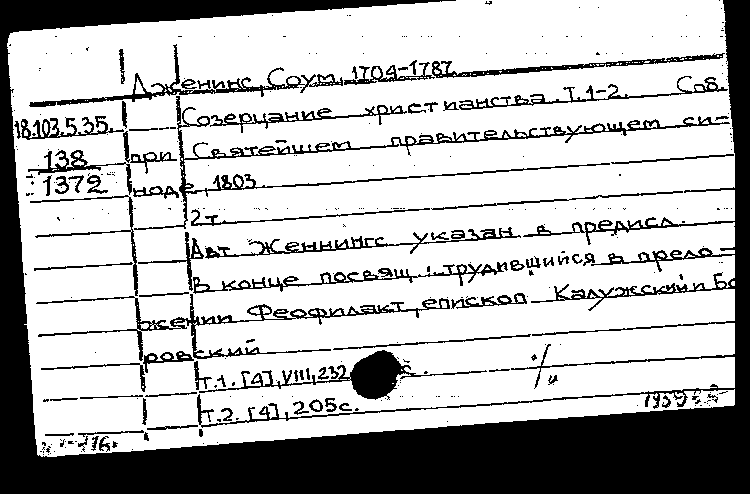 Дженинс, Соум, 1704-1787.
18.103.5.35.
138
1372
Созерцание христианства. Т.1-2. Спб.
при Святейшем правительствующем си-
ноде, 1803.
2 т.
Авт. Женнингс указан в предисл.
В конце посвящ.: трудившийся в прело-
жении Феофилакт, епископ Калужский и Бо
ровский
Т.1. [4], VIII, 232 с.
Т.2. [4], 205 с.